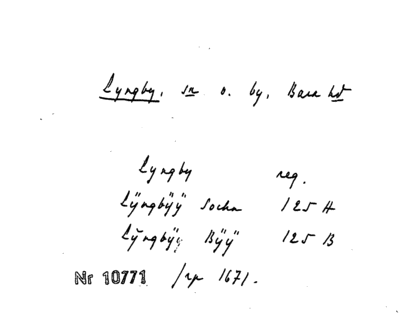 Lyngby, sn o. by, Bara hd
Lyngby reg.
Lÿngbÿÿ Sochn 125 H
Lÿngbÿÿ Bÿÿ 125 B
Nr 10771 Jrp 1671.